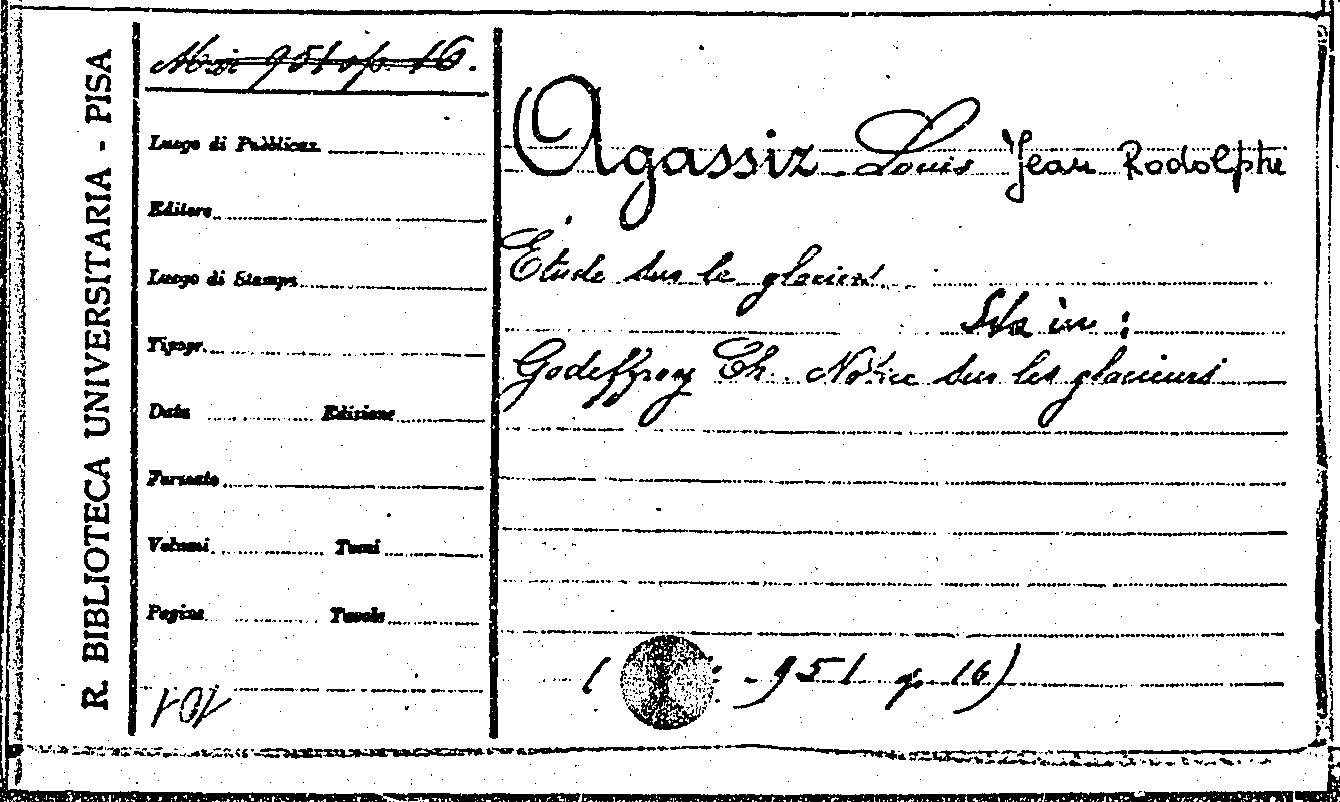 R. BIBLIOTECA UNIVERSITARIA - PISA
Misc 951 op. 16.
Luogo di Pubblicaz.
Editore
Luogo di Stampa
Tipogr.
Data Edizione
Formato
Volumi Tomi
Pagine Tavole
101
Agassiz Louis Jean Rodolphe
Etude sur le glaciers
Sta in:
Godeffroy Ch. Notice sur les glacieurs
( : 951 op. 16)